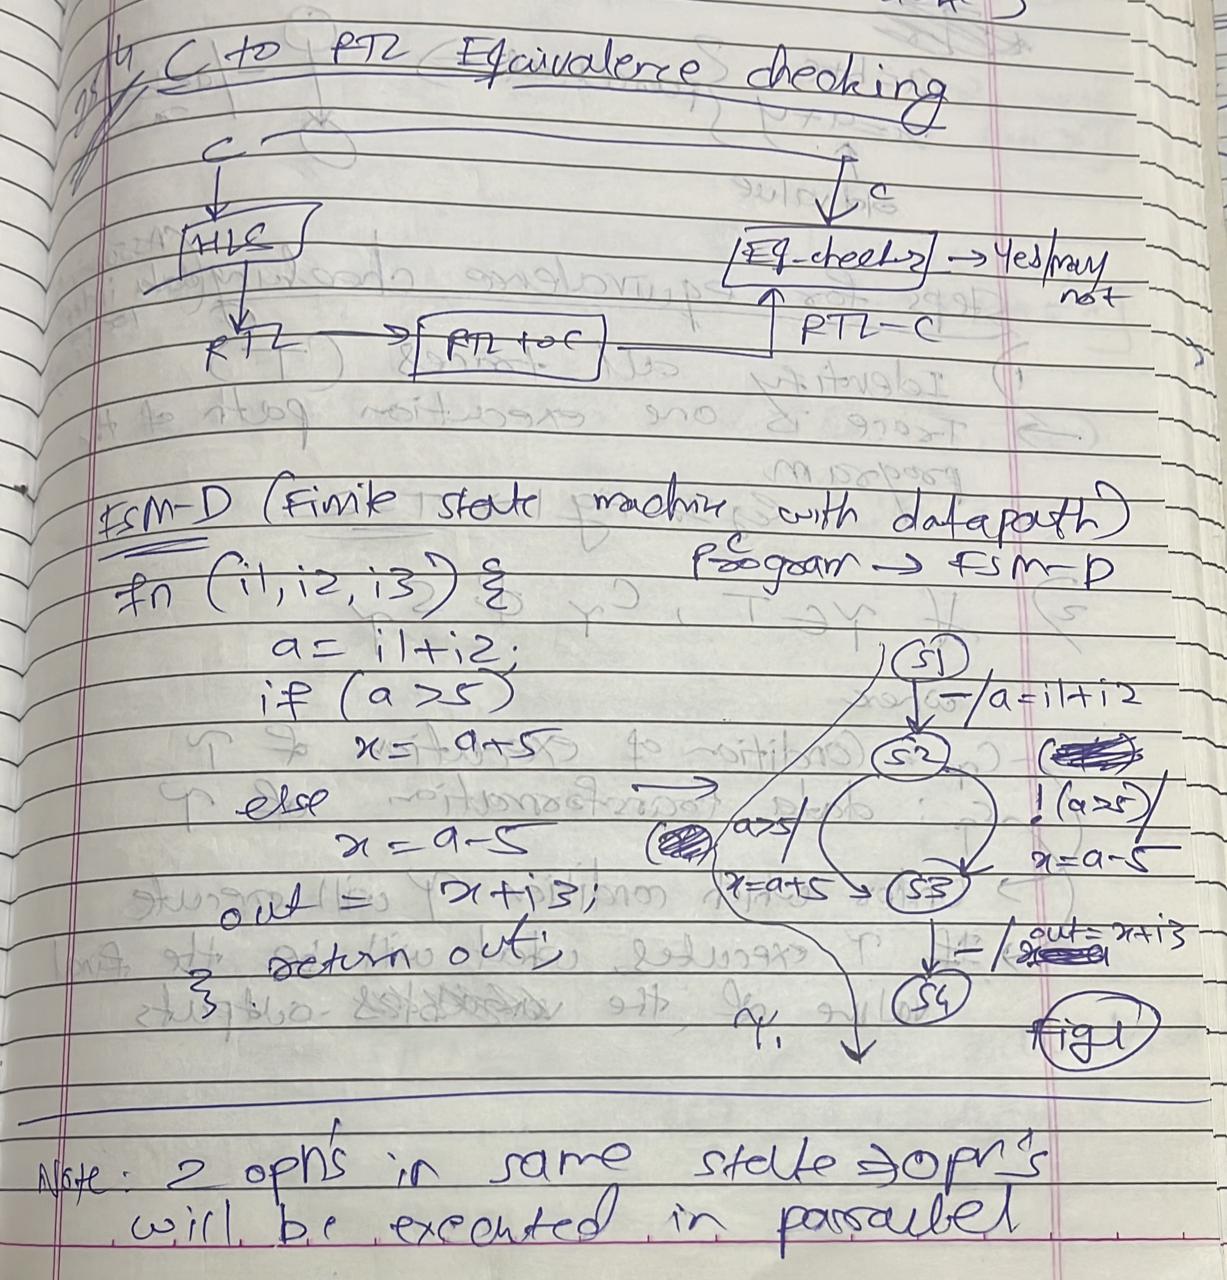 C to RTL Equivalence checking
C
C
HLS
Eq-checker → Yes/may
not
RTL → RTL to C
RTL-C
FSM-D (Finite state machine with datapath)
C
Program → FSM-D
fn (i1, i2, i3) {
a = i1+i2;
if (a>5)
x = a+5
else
x = a-5
out = x+i3;
return out;
}
S1
-/a=i1+i2
S2
!(a>5)/
x=a-5
a>5/
x=a+5
S3
-/out=x+i3
S4
γ1
Fig 1
Note: 2 opn's in same state ⇒ opn's
will be executed in parallel